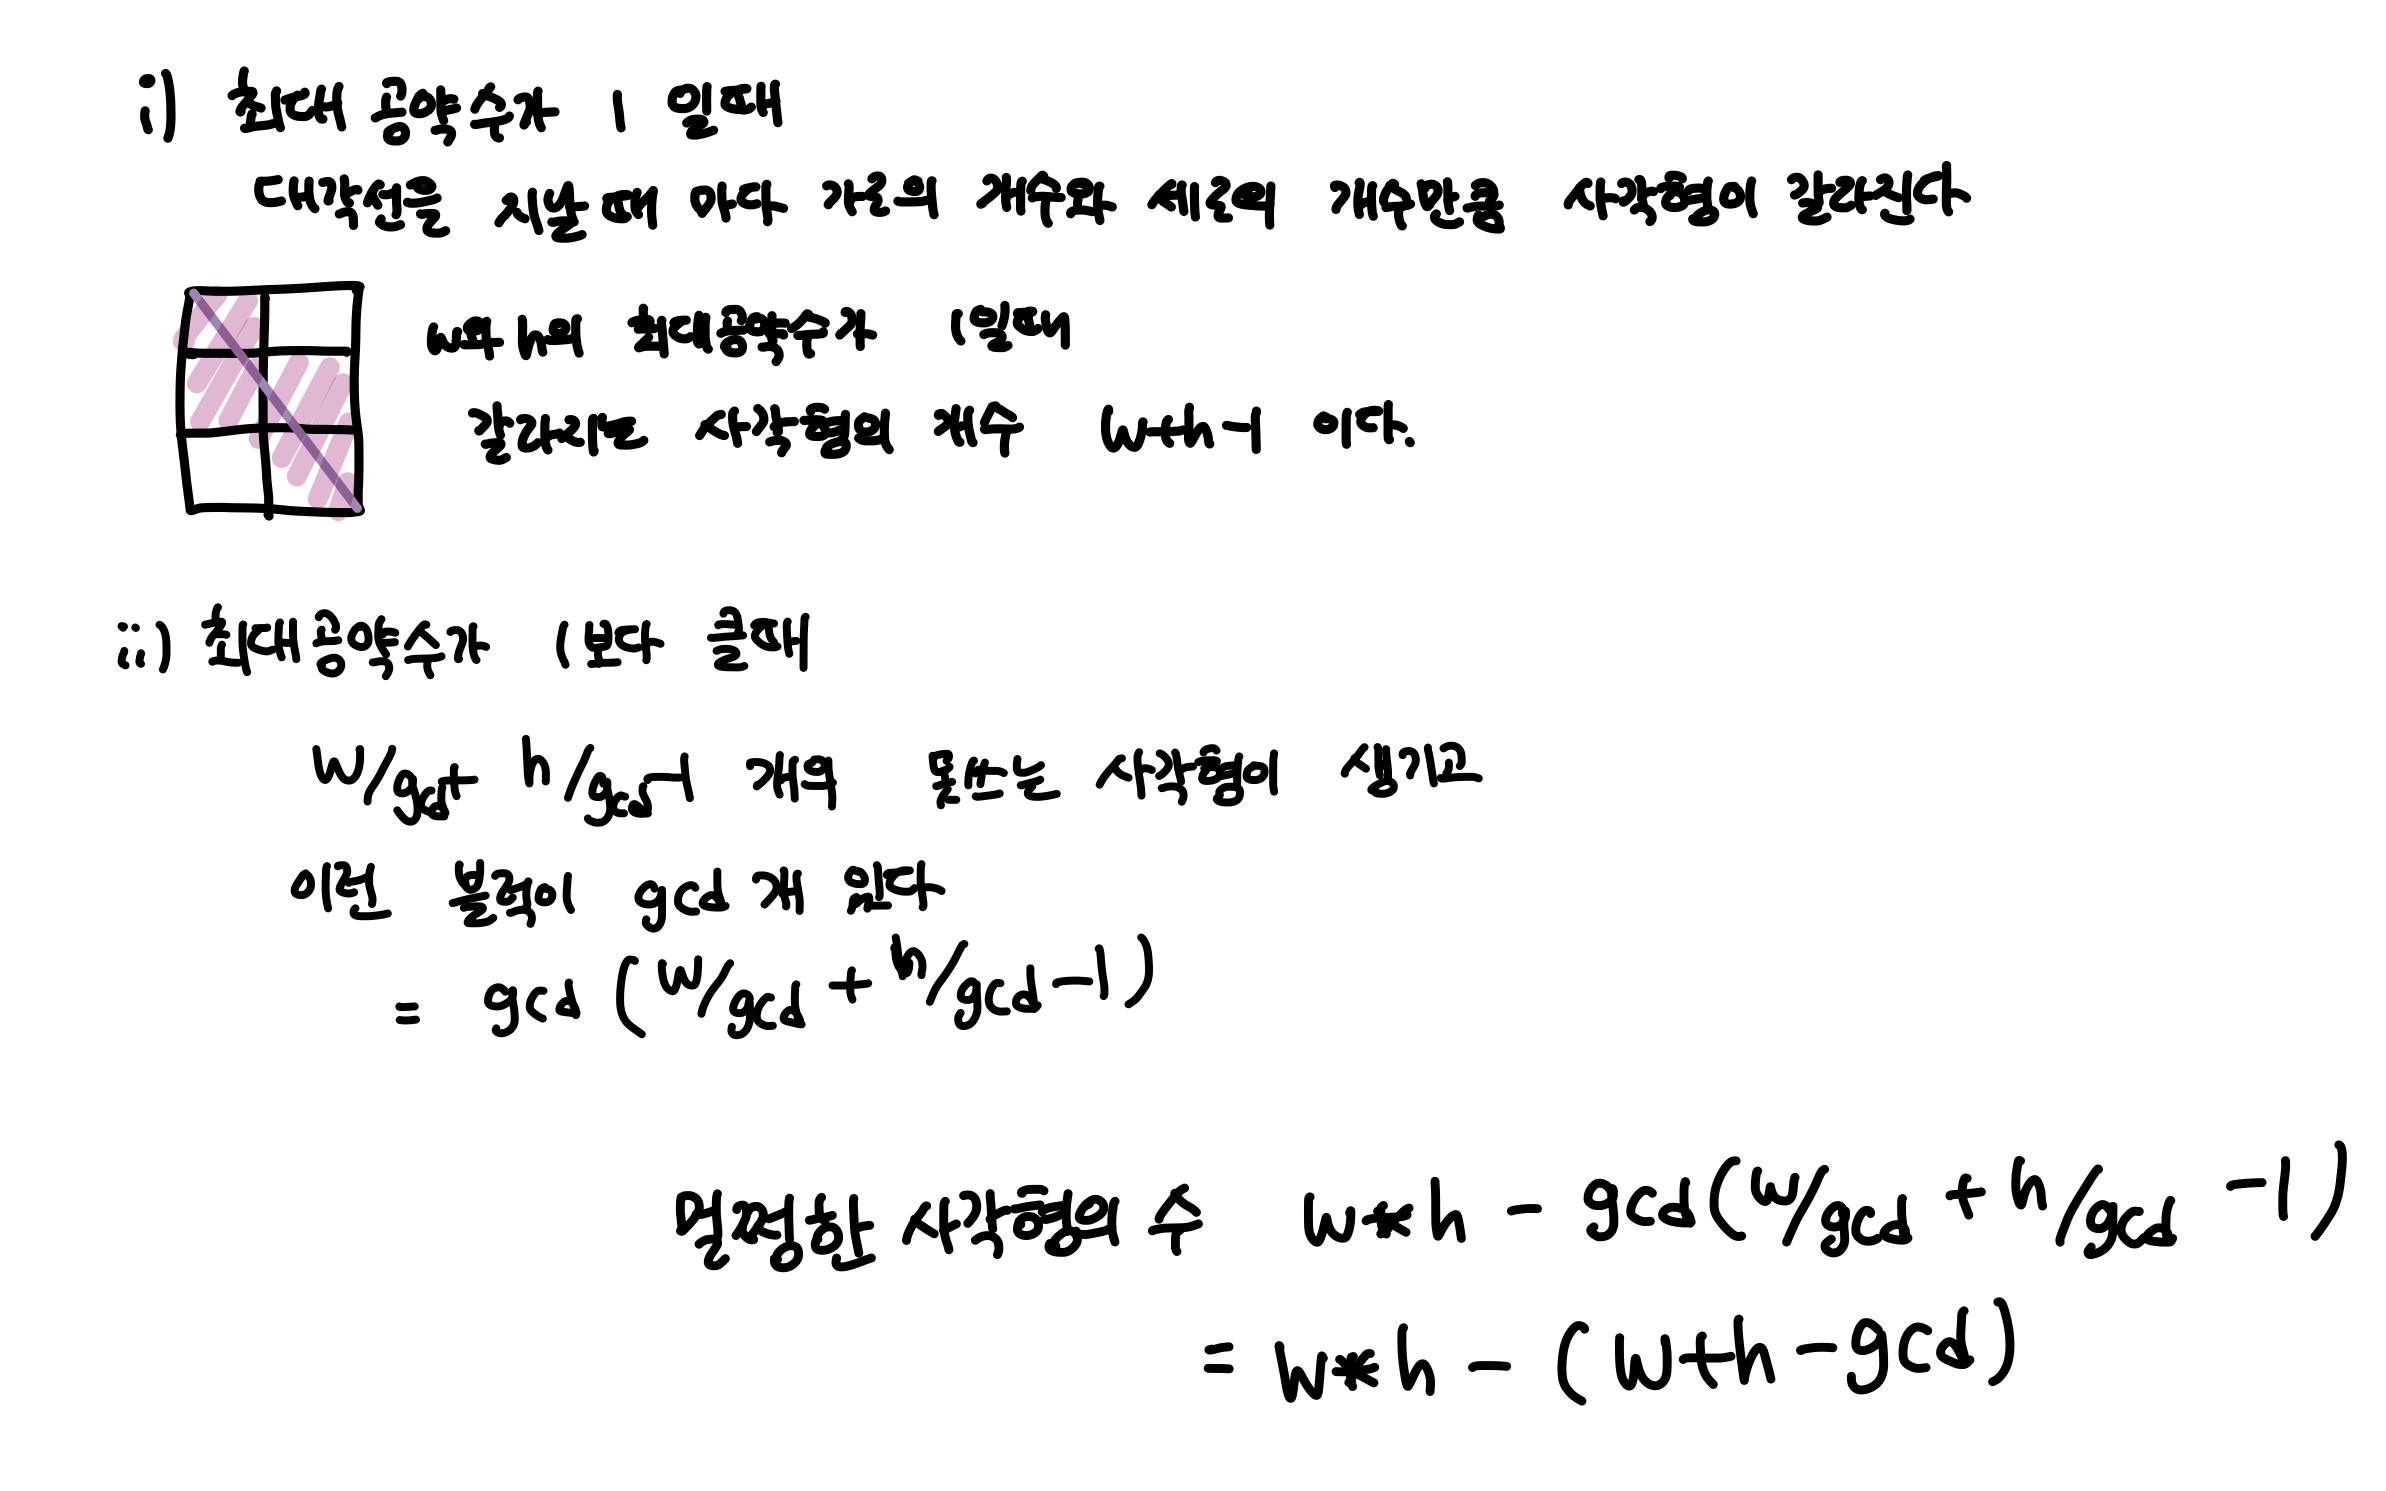 i) 최대 공약수가 1 일때
대각선을 지날때 마다 가로의 개수와 세로의 개수만큼 사각형이 잘려진다
w와 h의 최대공약수가 1일때
잘려지는 사각형의 개수 w+h-1 이다.
ii) 최대공약수가 1보다 클때
w/gcd+ h/gcd-1 개의 못쓰는 사각형이 생기고
이런 블럭이 gcd개 있다
= gcd (w/gcd + h/gcd-1)
멀쩡한 사각형의 수 w*h - gcd(w/gcd + h/gcd -1)
= w*h - (w+h-gcd)